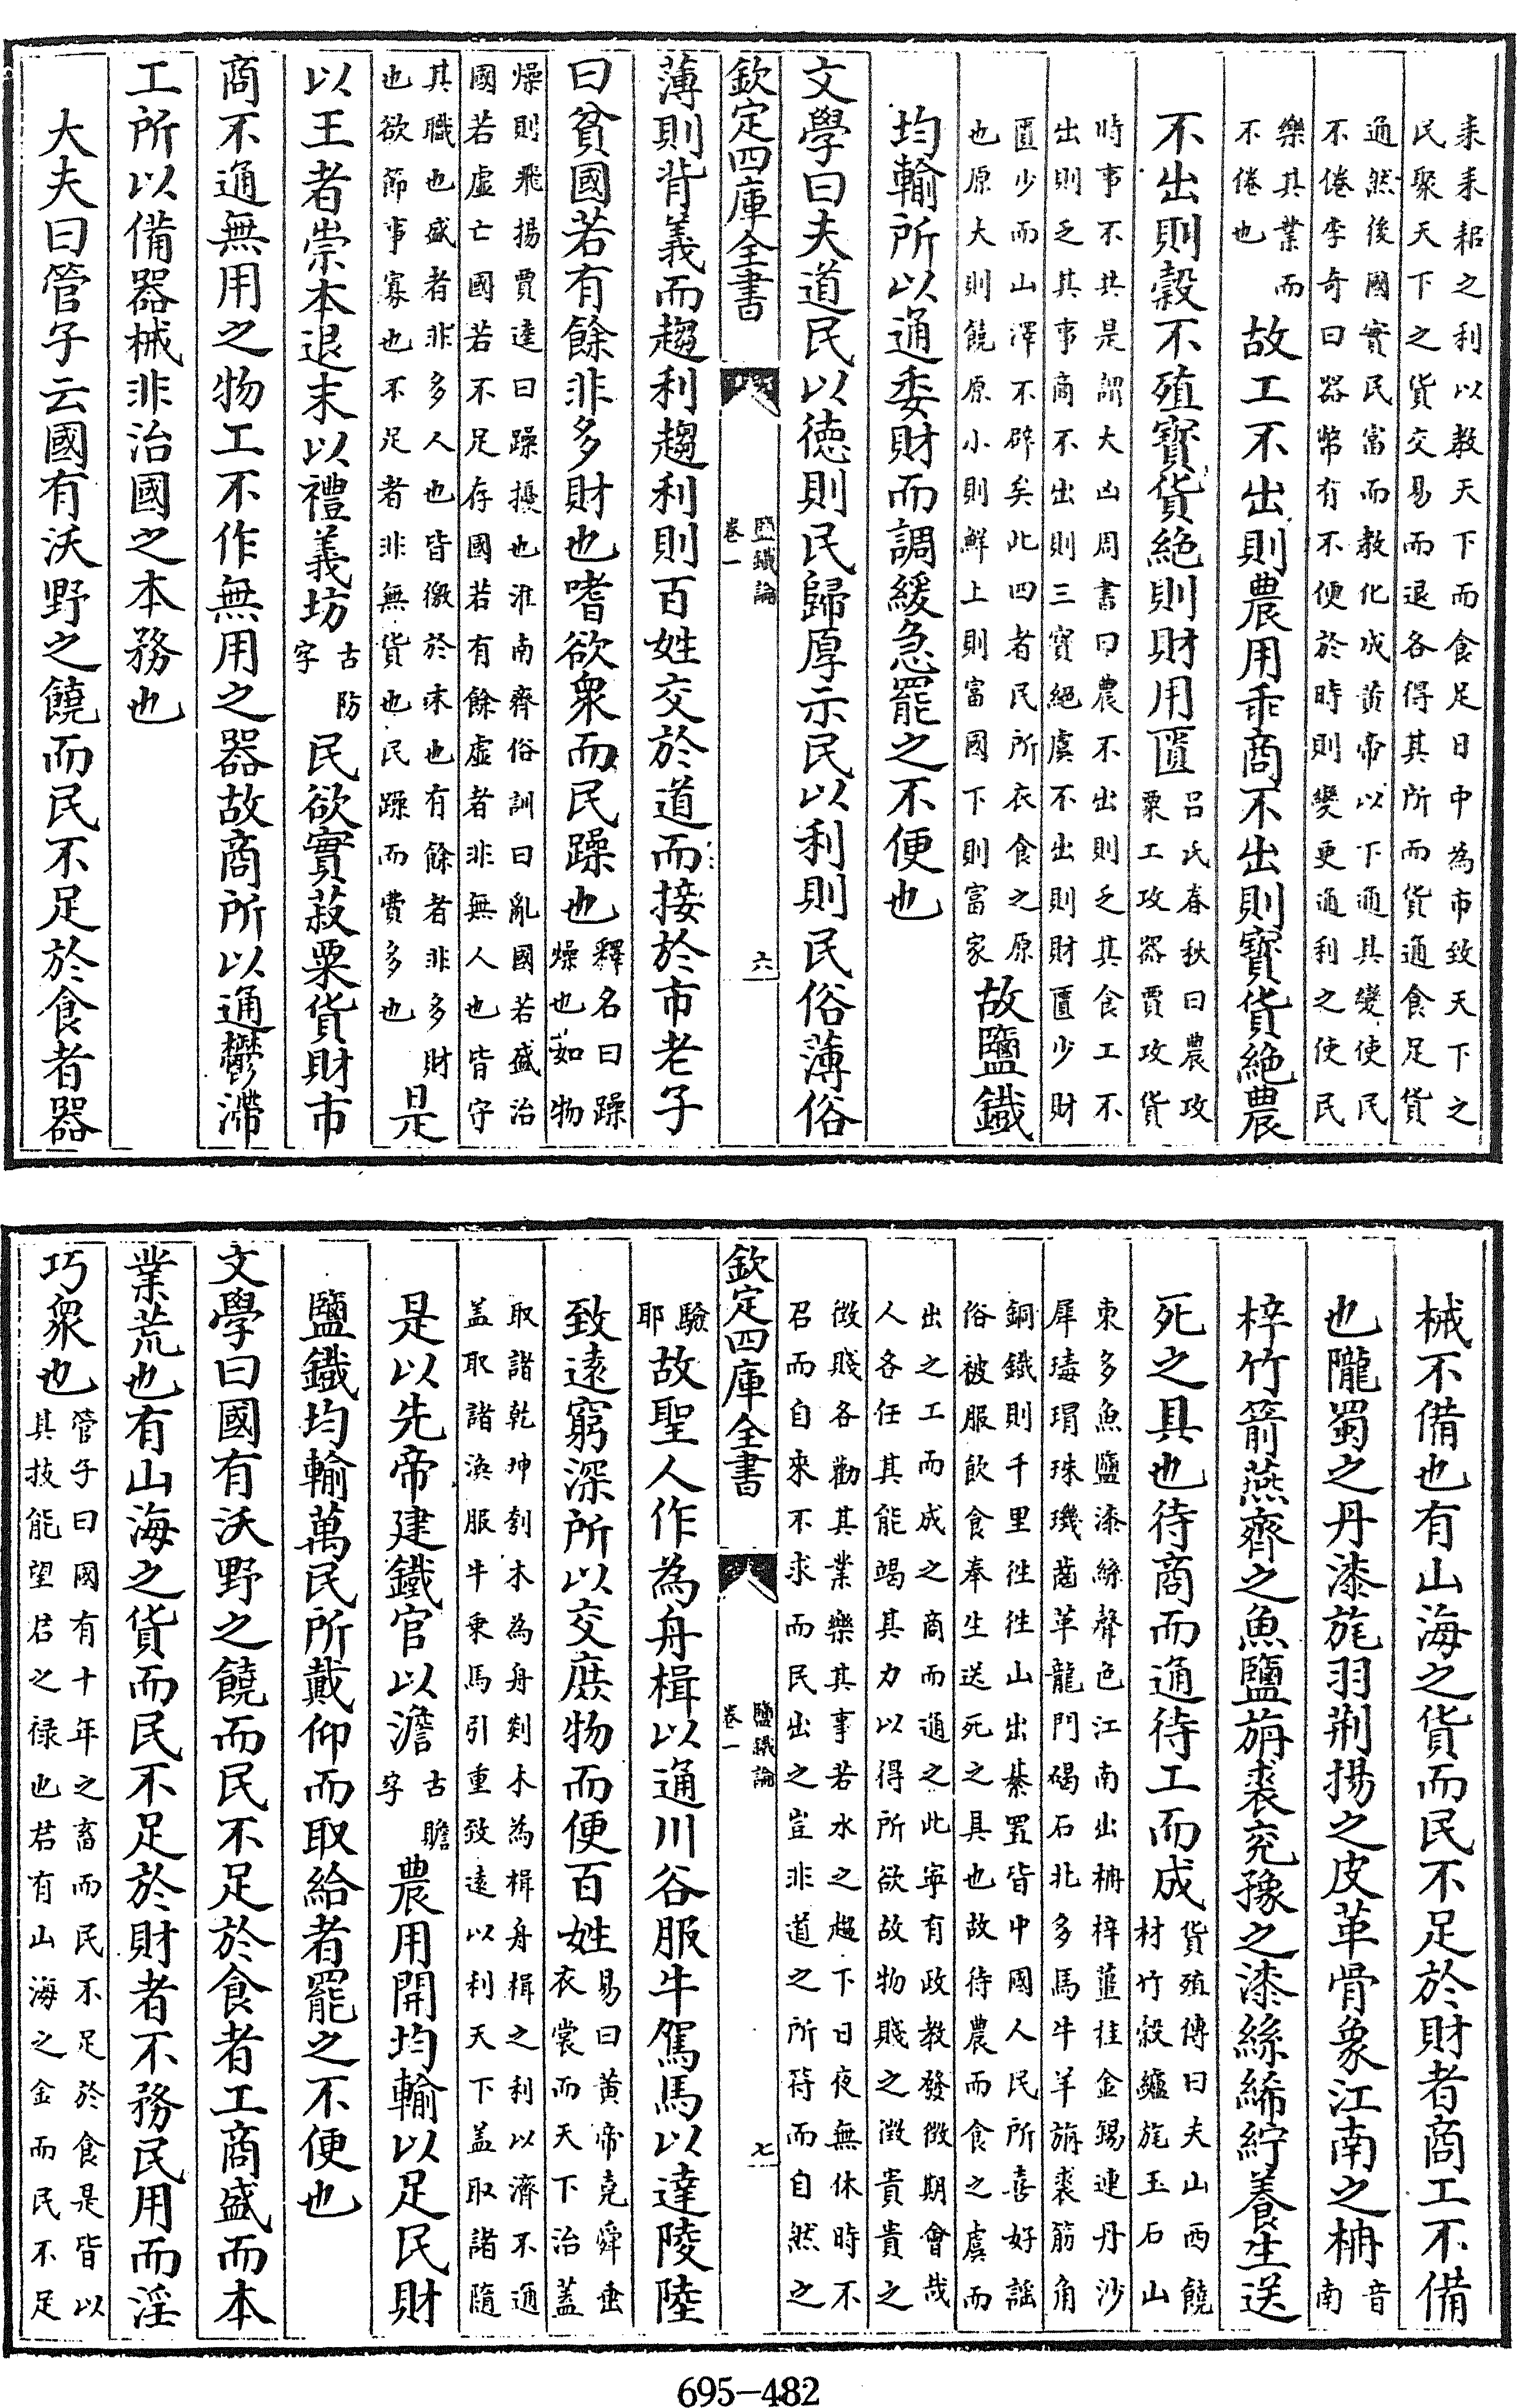 耒耒耜之利以教天下而食足日中為市致天下之
民聚天下之貨交易而退各得其所而貨通食足貨
通然後國實民富而教化成黄帝以下通其變使民
不倦李奇曰器幣有不便於時則變更通利之使民
樂其業而
不倦也
故工不出則農用乖商不出則寶貨絶農
不出則穀不殖寶貨絶則財用匱
吕氏春秋曰農攻
粟工攻器賈攻貨
時事不共是謂大凶周書曰農不出則乏其食工不
出則乏其事商不出則三寶絕虞不出則財匱少財
匱少而山澤不辟矣此四者民所衣食之原
也原大則饒原小則鮮上則富國下則富家
故鹽鐵
均輸所以通委財而調緩急罷之不便也
文學曰夫道民以徳則民歸厚示民以利則民俗薄俗
欽定四庫全書
鹽鐵論
卷一
六
薄則背義而趨利趨利則百姓交於道而接於市老子
曰貧國若有餘非多財也嗜欲衆而民躁也
釋名曰躁
燥也如物
燥則飛揚賈逵曰躁擾也淮南齊俗訓曰亂國若盛治
國若虛亡國若不足存國若有餘虛者非無人也皆守
其職也盛者非多人也皆徼於末也有餘者非多財
也欲節事寡也不足者非無貨也民躁而費多也
是
以王者崇本退末以禮義坊
古防
字
民欲實菽粟貨財市
商不通無用之物工不作無用之器故商所以通鬱滯
工所以備器械非治國之本務也
大夫曰管子云國有沃野之饒而民不足於食者器
械不備也有山海之貨而民不足於財者商工不備
也隴蜀之丹漆旄羽荆揚之皮革骨象江南之柟
音
南
梓竹箭燕齊之魚鹽旃裘兖豫之漆絲絺紵養生送
死之具也待商而通待工而成
貨殖傳曰夫山西饒
材竹榖纑旄玉石山
東多魚鹽漆絲聲色江南出柟梓薑桂金錫連丹沙
犀瑇瑁珠璣齒革龍門碣石北多馬牛羊旃裘筋角
銅鐵則千里徃徃山出棊置皆中國人民所喜好謡
俗被服飲食奉生送死之具也故待農而食之虞而
出之工而成之商而通之此寧有政教發徴期會哉
人各任其能竭其力以得所欲故物賤之徴貴貴之
徴賤各勸其業樂其事若水之趨下日夜無休時不
召而自來不求而民出之豈非道之所符而自然之
欽定四庫全書
鹽鐵論
卷一
七
驗
耶
故聖人作為舟楫以通川谷服牛駕馬以達陵陸
致逺窮深所以交庶物而便百姓
易曰黄帝堯舜垂
衣裳而天下治盖
取諸乾坤刳木為舟剡木為楫舟楫之利以濟不通
盖取諸渙服牛乘馬引重致逺以利天下盖取諸隨
是以先帝建鐵官以澹
古贍
字
農用開均輸以足民財
鹽鐵均輸萬民所戴仰而取給者罷之不便也
文學曰國有沃野之饒而民不足於食者工商盛而本
業荒也有山海之貨而民不足於財者不務民用而淫
巧衆也
管子曰國有十年之畜而民不足於食是皆以
其技能望君之禄也君有山海之金而民不足
695-482